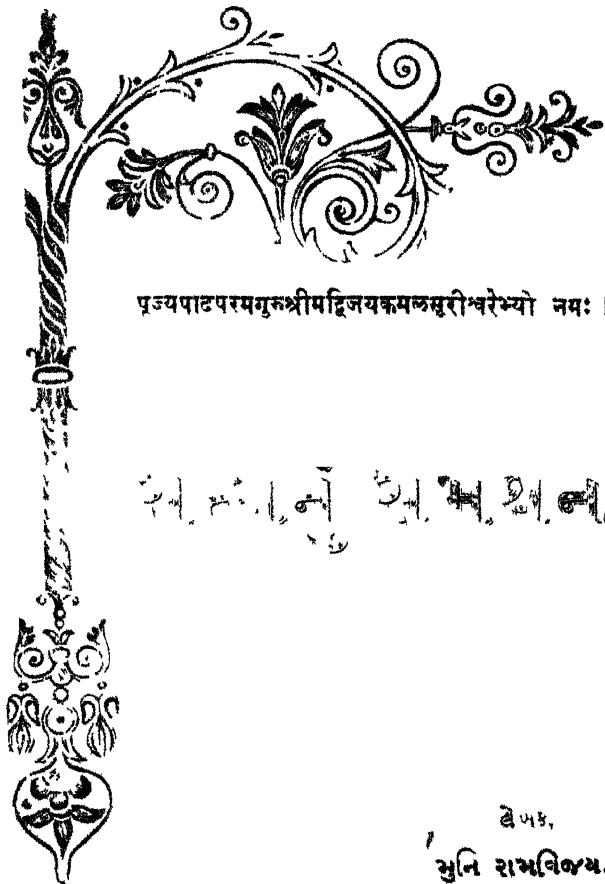 पूज्यपादपरमगुरुश्रीमद्विजयकमलसूरीश्वरेभ्यो नमः ।
સત્યનું સમર્થન
લેખક,
મુનિ રામવિજય.